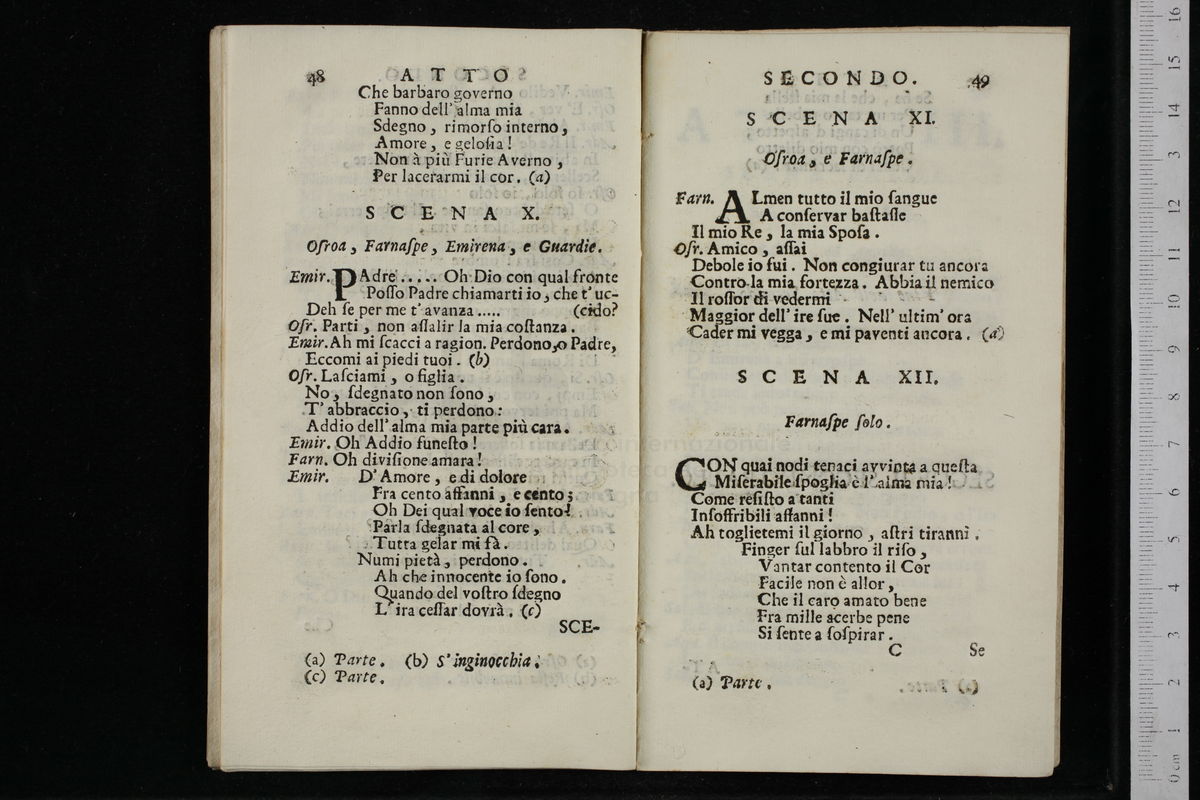 48 ATTO
Che barbaro governo
Fanno dell' alma mia
Sdegno, rimorſo interno,
Amore, e geloſia!
Non à più Furie Averno,
Per lacerarmi il cor. (a)
SCENA X.
Oſroa, Farnaſpe, Emirena, e Guardie.
Emir. PAdre ..... Oh Dio con qual fronte
Poſſo Padre chiamarti io, che t' uc-
Deh ſe per me t' avanza ..... (cido?
Oſr. Parti, non aſſalir la mia coſtanza.
Emir. Ah mi ſcacci a ragion. Perdono, o Padre,
Eccomi ai piedi tuoi. (b)
Oſr. Laſciami, o figlia.
No, ſdegnato non ſono,
T' abbraccio, ti perdono:
Addio dell' alma mia parte più cara.
Emir. Oh Addio funeſto!
Farn. Oh diviſione amara!
Emir. D' Amore, e di dolore
Fra cento affanni, e cento;
Oh Dei qual voce io ſento!
Parla ſdegnata al core,
Tutta gelar mi fà.
Numi pietà, perdono.
Ah che innocente io ſono.
Quando del voſtro ſdegno
L' ira ceſſar dovrà. (c)
SCE-
(a) Parte. (b) S' inginocchia.
(c) Parte.
SECONDO. 49
SCENA XI.
Oſroa, e Farnaſpe.
Farn. ALmen tutto il mio ſangue
A conſervar baſtaſſe
Il mio Re, la mia Spoſa.
Oſr. Amico, aſſai
Debole io fui. Non congiurar tu ancora
Contro la mia fortezza. Abbia il nemico
Il roſſor di vedermi
Maggior dell' ire ſue. Nell' ultim' ora
Cader mi vegga, e mi paventi ancora. (a)
SCENA XII.
Farnaſpe ſolo.
CON quai nodi tenaci avvinta a queſta
Miſerabile ſpoglia è l' alma mia!
Come reſiſto a tanti
Inſoffribili affanni!
Ah toglietemi il giorno, aſtri tiranni.
Finger ſul labbro il riſo,
Vantar contento il Cor
Facile non è allor,
Che il caro amato bene
Fra mille acerbe pene
Si ſente a ſoſpirar.
C Se
(a) Parte.